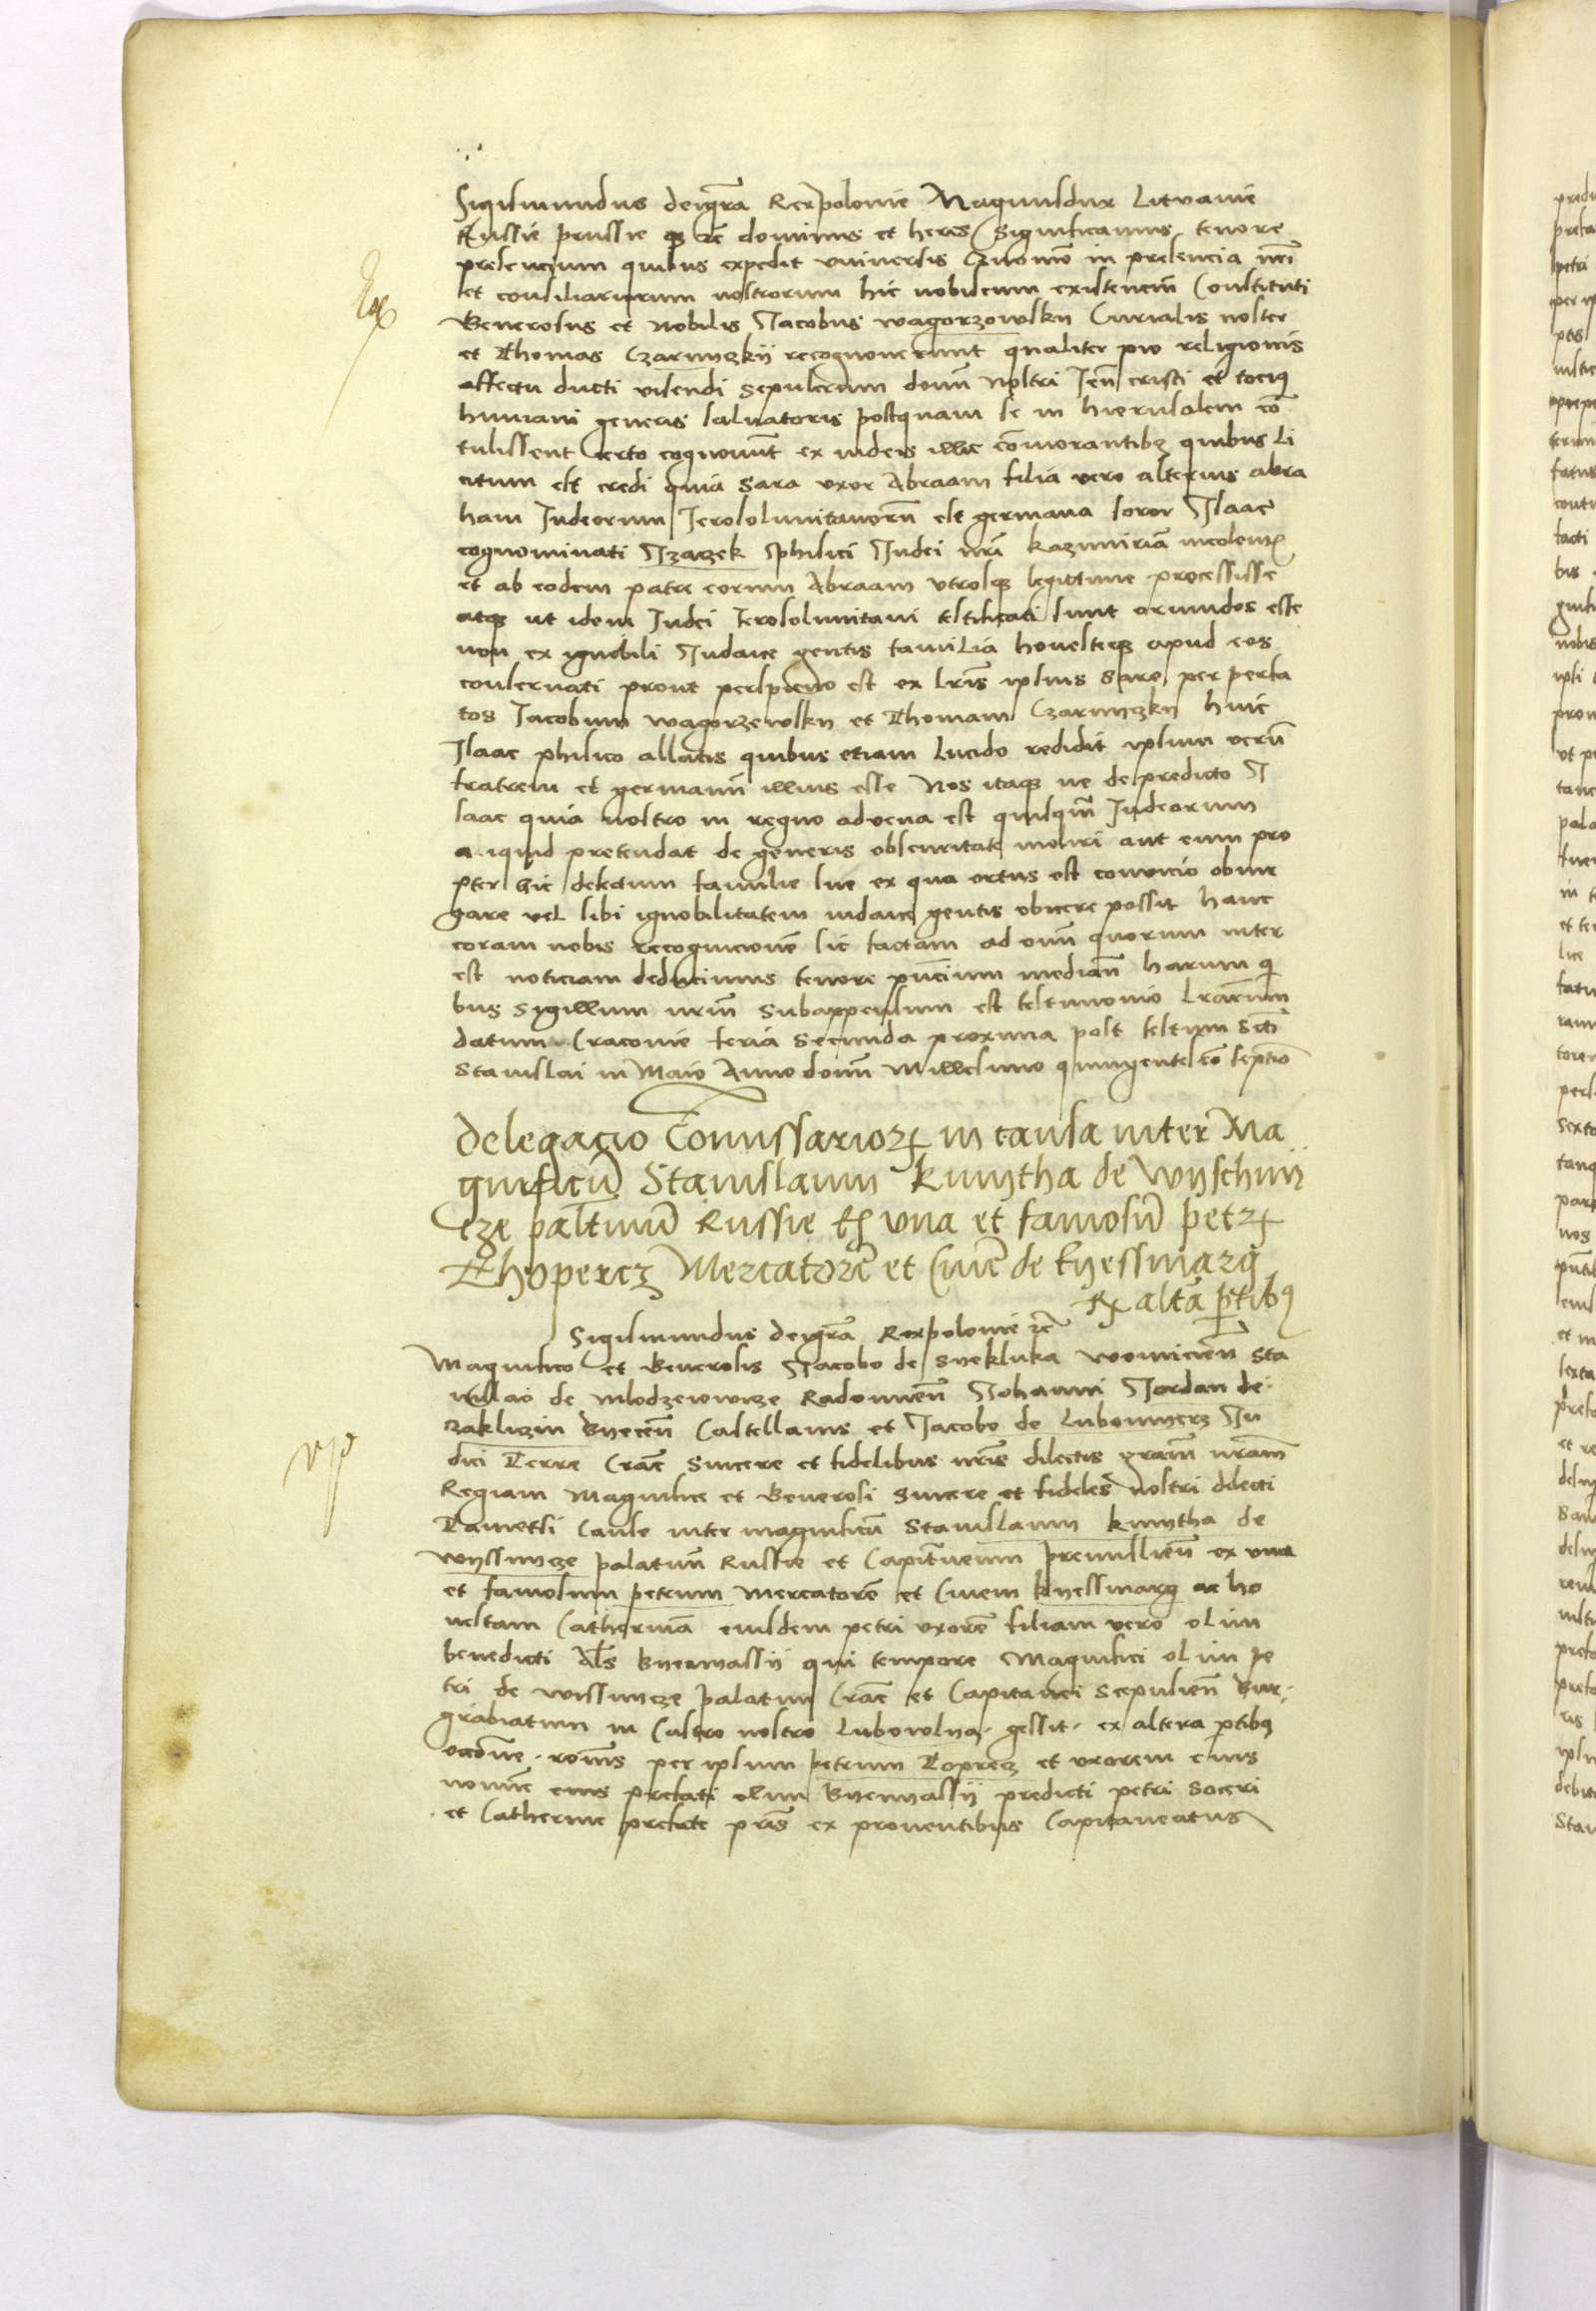 Sigismundus dei gra Rex polonie Magnus dux Lituanie
Russie prussie qz zc dominus et heres Significamus tenore
presencium quibus expedit vniversis Quomo in presencia nri
et consiliariorum nostrorum hic nobiscum existencm Constituti
Generosus et Nobilis Jacobus wagorzowsky Curialis noster
et Thomas Czarnyzkij recognouerunt qualiter pio religionis
affectu ducti visendi sepulcrum domi nostri Jeu cristi et tocius
humani generis saluatoris postquam se in hierusalem co
tulissent certo cognouerunt ex iudeis illic comorantibz quibus li
citum est credi quia Sara vxor Abraam filia vero alterius abra
ham Judeorum Jerosolimitanorum est germana soror Isaac
cognominati Izaczek philici Judei nri kazimiriam incolentis
et ab eodem patre eorum Abraam vtrosqz legittime processisse
atqz ut idem Judei Ierosolimitani testificati sunt oriundos esse
non ex ignobili Judaice gentis familia honesteqz apud eos
conseruati prout perspicuo est ex lris ipsius Sare per prefa
tos Jacobum wagorzewsky et Thomam Czarnyzky huic
Isaac philico allatis quibus etiam lucido redidit ipsum verum
fratrem et germanum illius esse Nos itaqz ne de predicto I
saac quia nostro in regno advena est quisqm Judeorum
aliquid pretendat de generis obscuritate moueri aut eum pro
pter hic defectum familie sue ex qua ortus est conuicio obiur
gare vel sibi ignobilitatem iudaice gentis obiicere possit hanc
coram nobis recognicionem sic factam ad omm quorum inter
est noticiam deducimus tenore pncium median harum qi
bus Sigillum nrm Subappensum est testimonio lrarum
datum Craconie feria Secunda proxima post festum Scti
Stanislai in Maio Anno domi Millesimo quingentesio septio
Delegacio Comissariorz in causa inter Ma
gnificum Stanislaum kmytha de Wyschnij
cze paltinum Russie Ex vna et famosum petrz
Thopercz Mercatore et Ciue de kyessmarg
Ex altera ptibus
Sigismundus dei gra Rex polonie zc
Magnifico et Generosis Jacobo de Syekluka woynicien Sta
nislao de Mlodzeiowicze Radomien Johanni Jordan de
zakliczin Byecen Castellanis et Jacobo de Lubomyerz Ju
dici Terre Crac Sincere et fidelibus nris dilectis gram nram
Regiam Magnifice et Generosi Sincere et fideles nostri dilecti
Tametsi Cause inter magnificum Stanislaum kmytha de
wyssnycze palatinum Russie et Capitaneum premislien ex vna
et famosum petrum Mercatore et Ciuem kyessmarg ac ho
nestam Catherinam eiusdem petri vxorem filiam vero olim
benedicti Als Byernassij qui tempore Magnifici olim pe
tri de wissnicze palatini Crac et Capitanei Scepusien Bur
grabiatum in Castro nostro Lubowlya gessit ex altera ptibus
occone roms per ipsum petrum Toprcz et vxorem eius
nomine eius prefati olim Byernassij predicti petri Soceri
et Catherine prefate pris ex prouentibus Capitaneatus